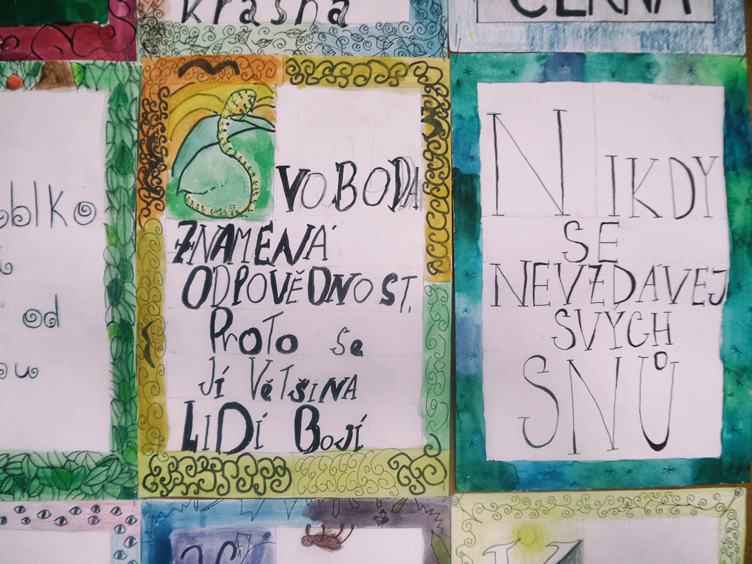 krasna
ČERNÁ
od
SVOBODA
ZNAMENÁ
ODPOVĚDNOST.
PROTO Se
JÍ VĚTŠINA
LIDÍ BOJÍ
NIKDY
SE
NEVZDÁVEJ
SVÝCH
SNŮ